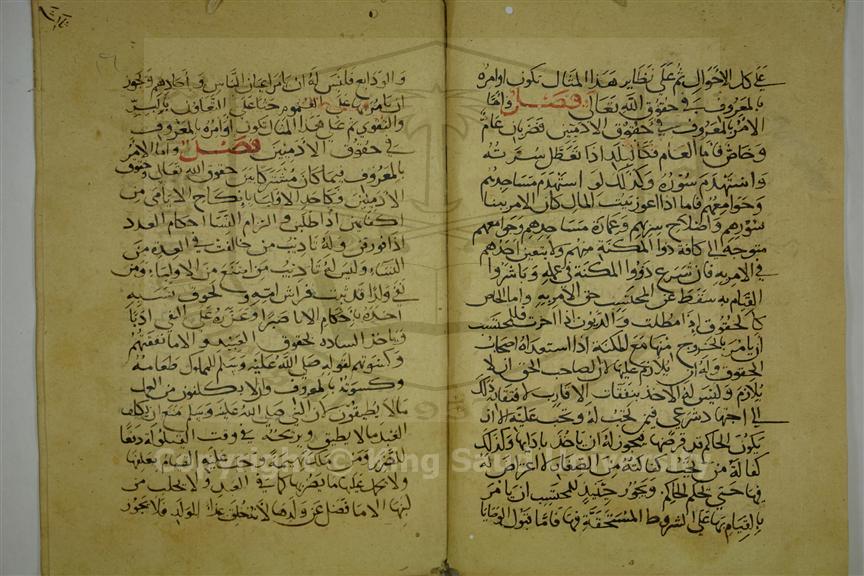 على كل الاحوال ثم على نظاير هذا المثال تكون اوامره
بالمعروف في حقوق الله تعالى فصل واما
الامر بالمعروف في حقوق الادميين فضربان عام
وخاص فاما العام فكالبلد اذا تعطل شربه
واستهدم سوره وكذلك لو استهدم مساجدهم
وجوامعهم فاما اذا اعوز بيت المال كان الامر ببنا
سورهم واصلاح شربهم وعمارة مساجدهم وجوامعهم
متوجه الى كافة ذوا المكنة منهم ولا يتعين احدهم
في الامر به فان شرع ذووا المكنة في عمله وباشروا
القيام به سقط عن المحتسب حق الامر به واما الخاص
كالحقوق اذا مطلت والديون اذا اخرت فللمحتسب
ان يامر بالخروج منها مع المكنة اذا استعداه اصحاب
الحقوق وله ان يلازم عليها لان لصاحب الحق ان
يلازم وليس له الاخذ بنفقات الاقارب لافتقار ذلك
الى اجتهاد شرعي فيمن تجب له وتجب عليه الا ان
يكون الحاكم قد فرضها فيجوز له ان ياخذ باداها وكذلك
كفالة من تجب كفالته من الصغار لا اعتراض له
فيها حتى يحكم الحاكم ويجوز حينيذ للمحتسب ان يامر
بالقيام بها على الشروط المستحقة فيها فاما قبول الوصايا
والودايع فليس له ان يامر اعيان الناس واحادهم ويجوز
ان يامر بها على العموم حثا على التعاون بالبر
والتقوى ثم على هذا المثال تكون اوامره بالمعروف
في حقوق الادميين فصل واما الامر
بالمعروف فيما كان مشتركا بين حقوق الله تعالى وحقوق
الادميين فكاخذ الاوليا بنكاح الايامى من
اكفايهن اذا طلبن والزام النسا احكام العدد
اذا فورقن وله تاديب من خالفت في العدة من
النساء وليس له تاديب من امتنع من الاولياء ومن
نفى ولدا قد ثبت فراش امه ولحوق نسبه
اخذه باحكام الابا جبرا وعزره على النفي ادبا
وياخذ السادة لحقوق العبيد والاما نفقتهم
وكسوتهم لقوله صلى الله عليه وسلم للمملوك طعامه
وكسوته بالمعروف وان لا يكلفون من العمل
مالا يطيقون لان النبي صلى الله عليه وسلم منع ان يكلف
العبد مالا يطيق ويريحه في وقت القيلولة دفعا
للضرر ومن ملك بهيمة وجب عليه القيام بعلفها
ولا يحمل عليها ما يضر بها كما في العبد ولا يحلب من
لبنها الا ما فضل عن ولدها لانه خلق غذا للولد فلا يجوز
Copyright © King Saud University